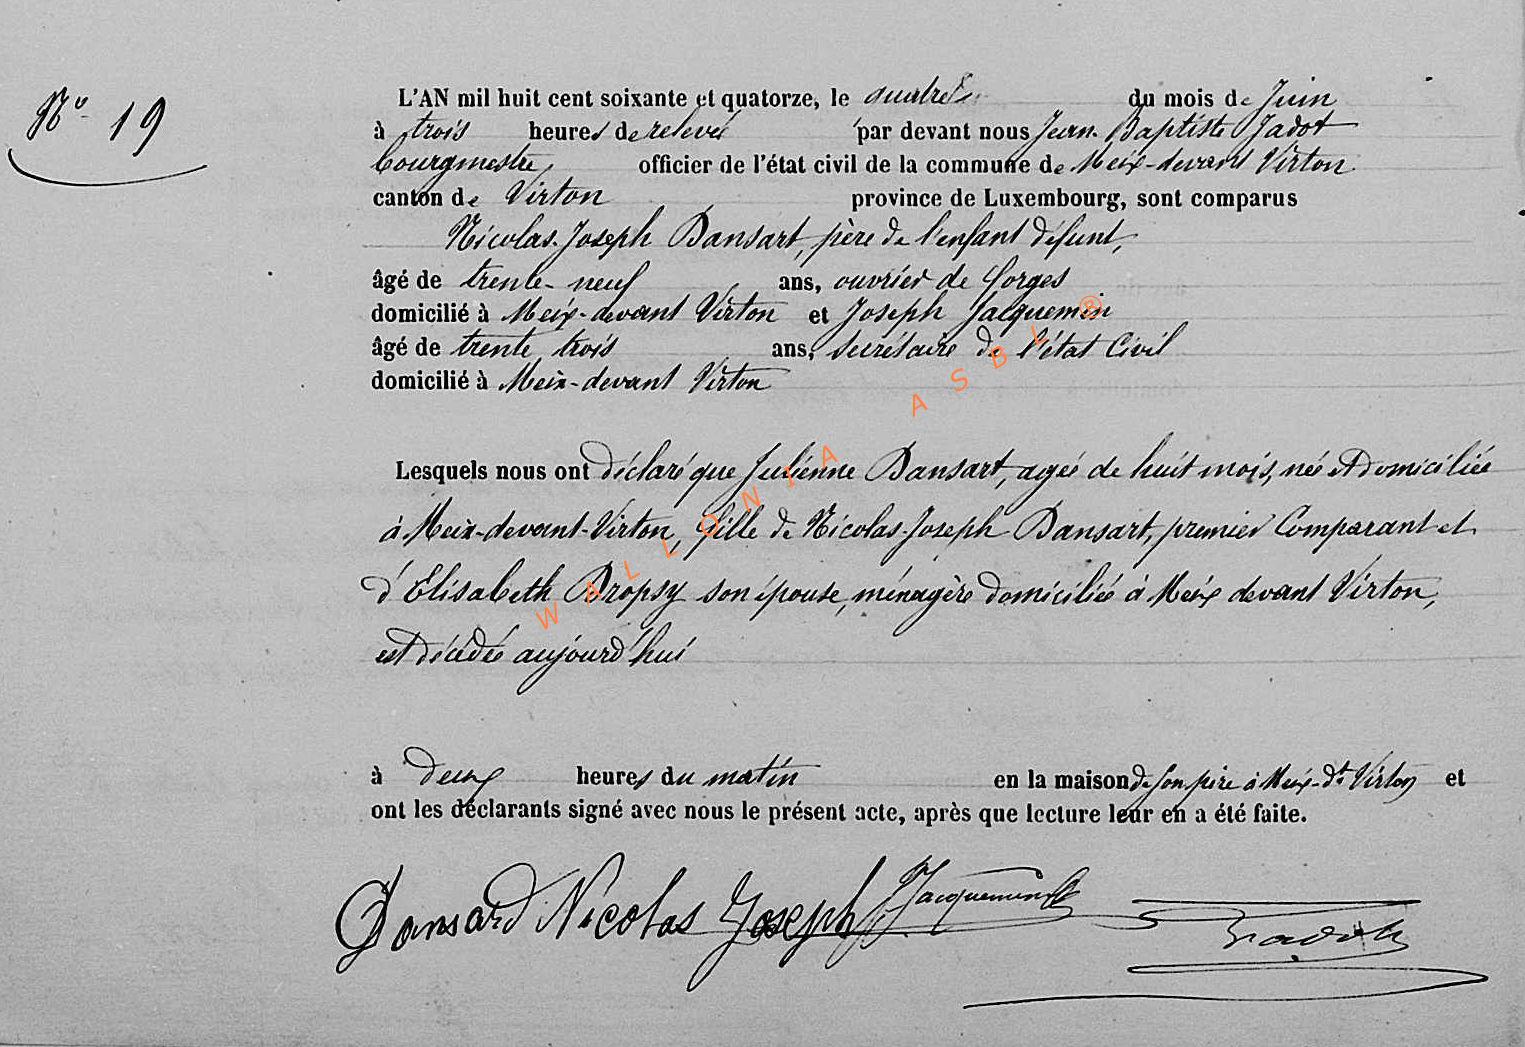 No 19
L'AN mil huit cent soixante et quatorze, le quatre du mois de Juin
à trois heures de relevée par devant nous Jean-Baptiste Jadot
bourgmestre officier de l'état civil de la commune de Meix-devant Virton
canton de Virton province de Luxembourg, sont comparus
Nicolas-Joseph Dansart, père de l'enfant défunt,
âgé de trente-neuf ans, ouvrier de forges
domicilié à Meix-devant Virton et Joseph Jacquemin
âgé de trente trois ans, secrétaire de l'état Civil
domicilié à Meix-devant Virton
Lesquels nous ont déclaré que Julienne Dansart, agée de huit mois, née et domiciliée
à Meix-devant-Virton, fille de Nicolas-Joseph Dansart, premier Comparant et
d'Elisabeth Dropsy son épouse, ménagère domiciliée à Meix devant Virton,
est décédée aujourd'hui
à deux heures du matin en la maison de son père à Meix-dt Virton et
ont les déclarants signé avec nous le présent acte, après que lecture leur en a été faite.
Dansard Nicolas Joseph JJacquemin Jadot
WALLONIA ASBL ®